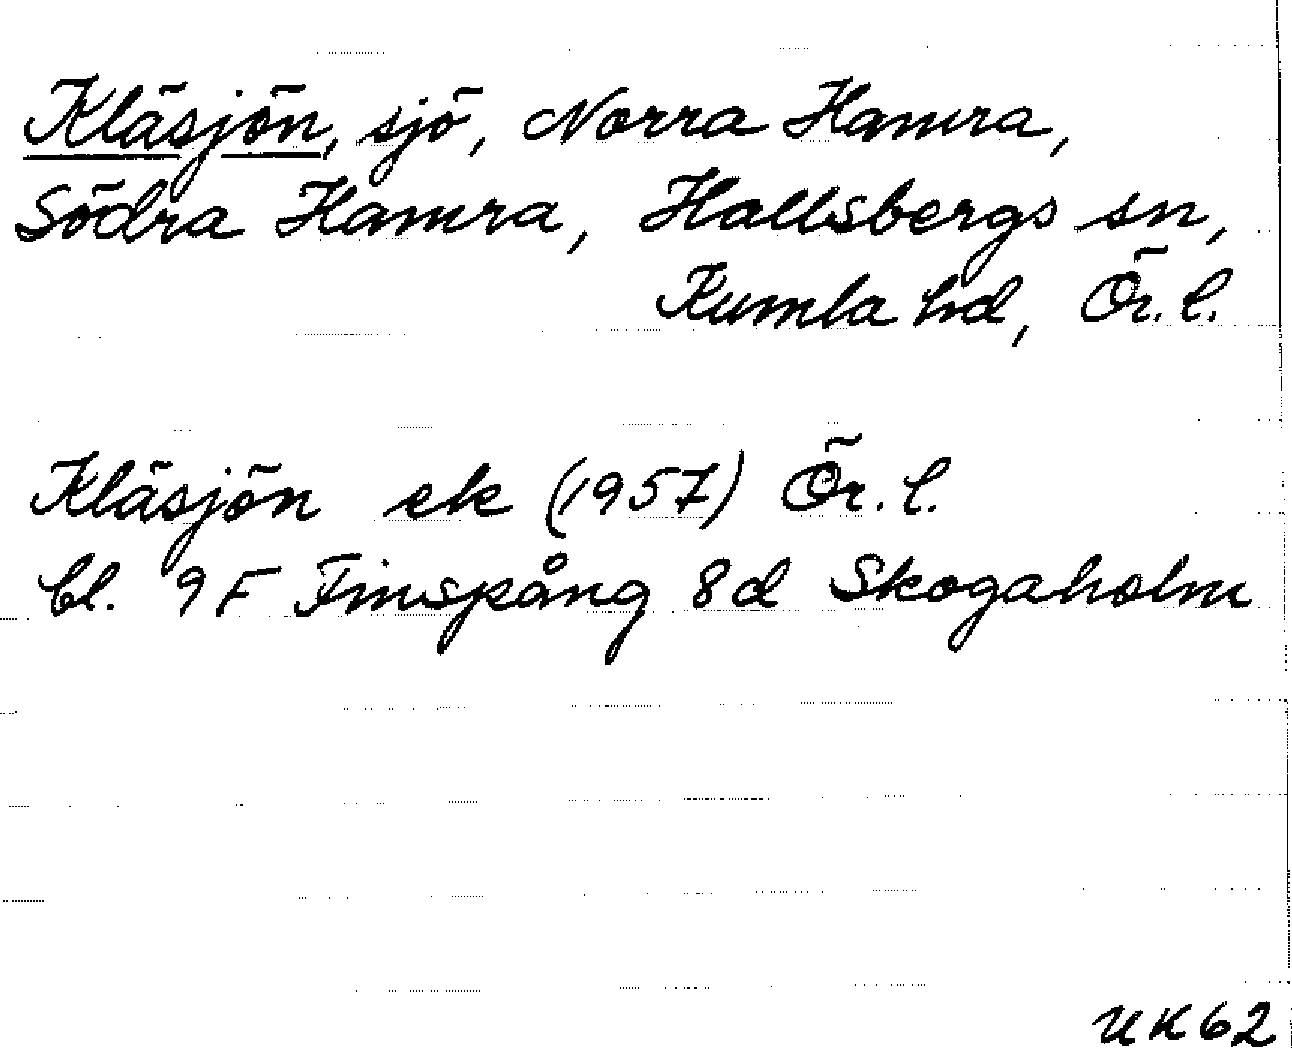 Kläsjön, sjö, Norra Hamra,
Södra Hamra, Hallsbergs sn,
Kumla hd, Ör. l.
Kläsjön ek (1957) Ör. l.
bl. 9F Finspång 8d Skogaholm
UK62